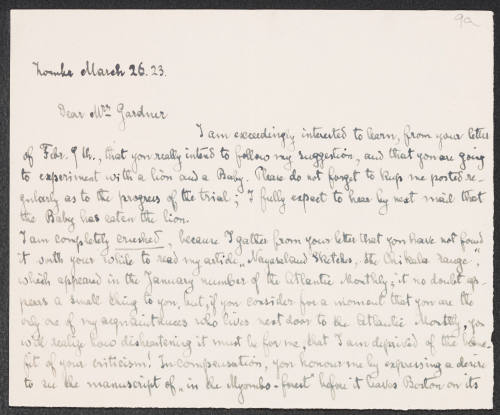 9a
Zomba March 26. 23.
Dear Mrs Gardner
I am exceedingly interested to learn, from your letter
of Febr. 9th., that you really intend to follow my suggestion, and that you are going
to experiment with a lion and a Baby. Please do not forget to keep me posted re-
gularly as to the progress of the trial; I fully expect to hear by next mail that
the Baby has eaten the lion.
I am completely crushed, because I gather from your letter that you have not found
it worth your while to read my article „Nyasaland Sketches, the Chikala range",
which appeared in the January number of the Atlantic Monthly; it no doubt ap-
pears a small thing to you, but, if you consider for a moment that you are the
only one of my acquaintances who lives next door to the Atlantic Monthly, you
will realize how disheartening it must be for me, that I am deprived of the bene-
fit of your criticism! In compensation, you honour me by expressing a desire
to see the manuscript of „in the Myombo-forest" before it leaves Boston on its